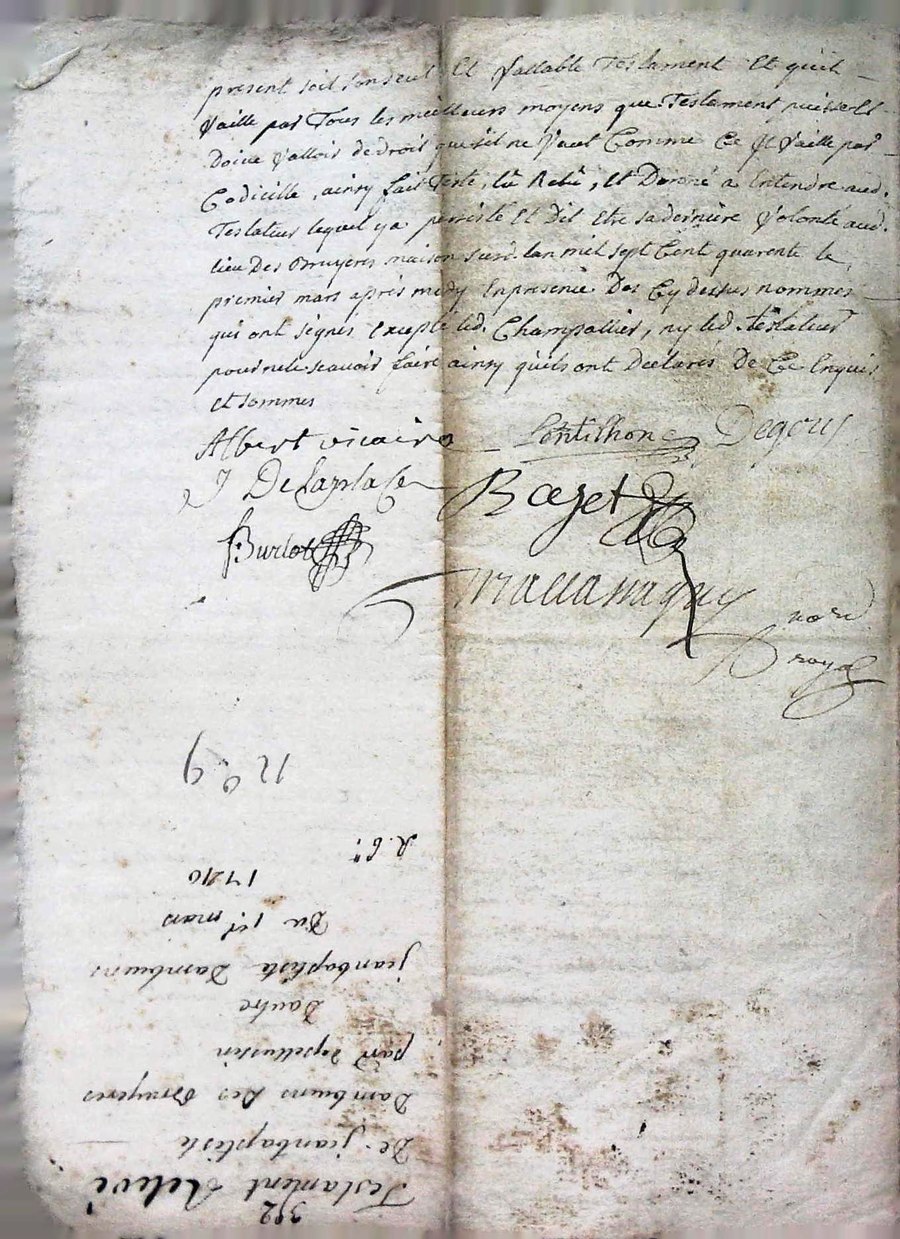 present soit son seul Et Vallable Testament Et quil
Vaille par Tous les meilleurs moyens que Testament puisse Et
Doive Valloir de droit que sil ne Vaut Comme Ce Il Vaille par
Codicille, ainsy fait Testé, lû Relû, et Donné a Entendre aud.
Testateur lequel y a persisté Et Dit Etre sa derniere Volonté aud.
lieu Des Bruyeres maison susd. lan mil sept Cent quarente le
premier mars après midy En presence Des Cy dessus nommés
qui ont signés Excepté led. Champallier, ny led. testateur
pour ne le scavoir faire ainsy quils ont Déclarés De Ce Enquis
et sommés
Albert vicaire Pontilhon Degous
J DeLaplace Bazet
Burlot
nord
royal
n° 9
1740
Du 1er mars
jeanbaptiste Dambuns
Dautre
Dambuns Des Bruyeres
De jeanbaptiste
Testament Relevé
352